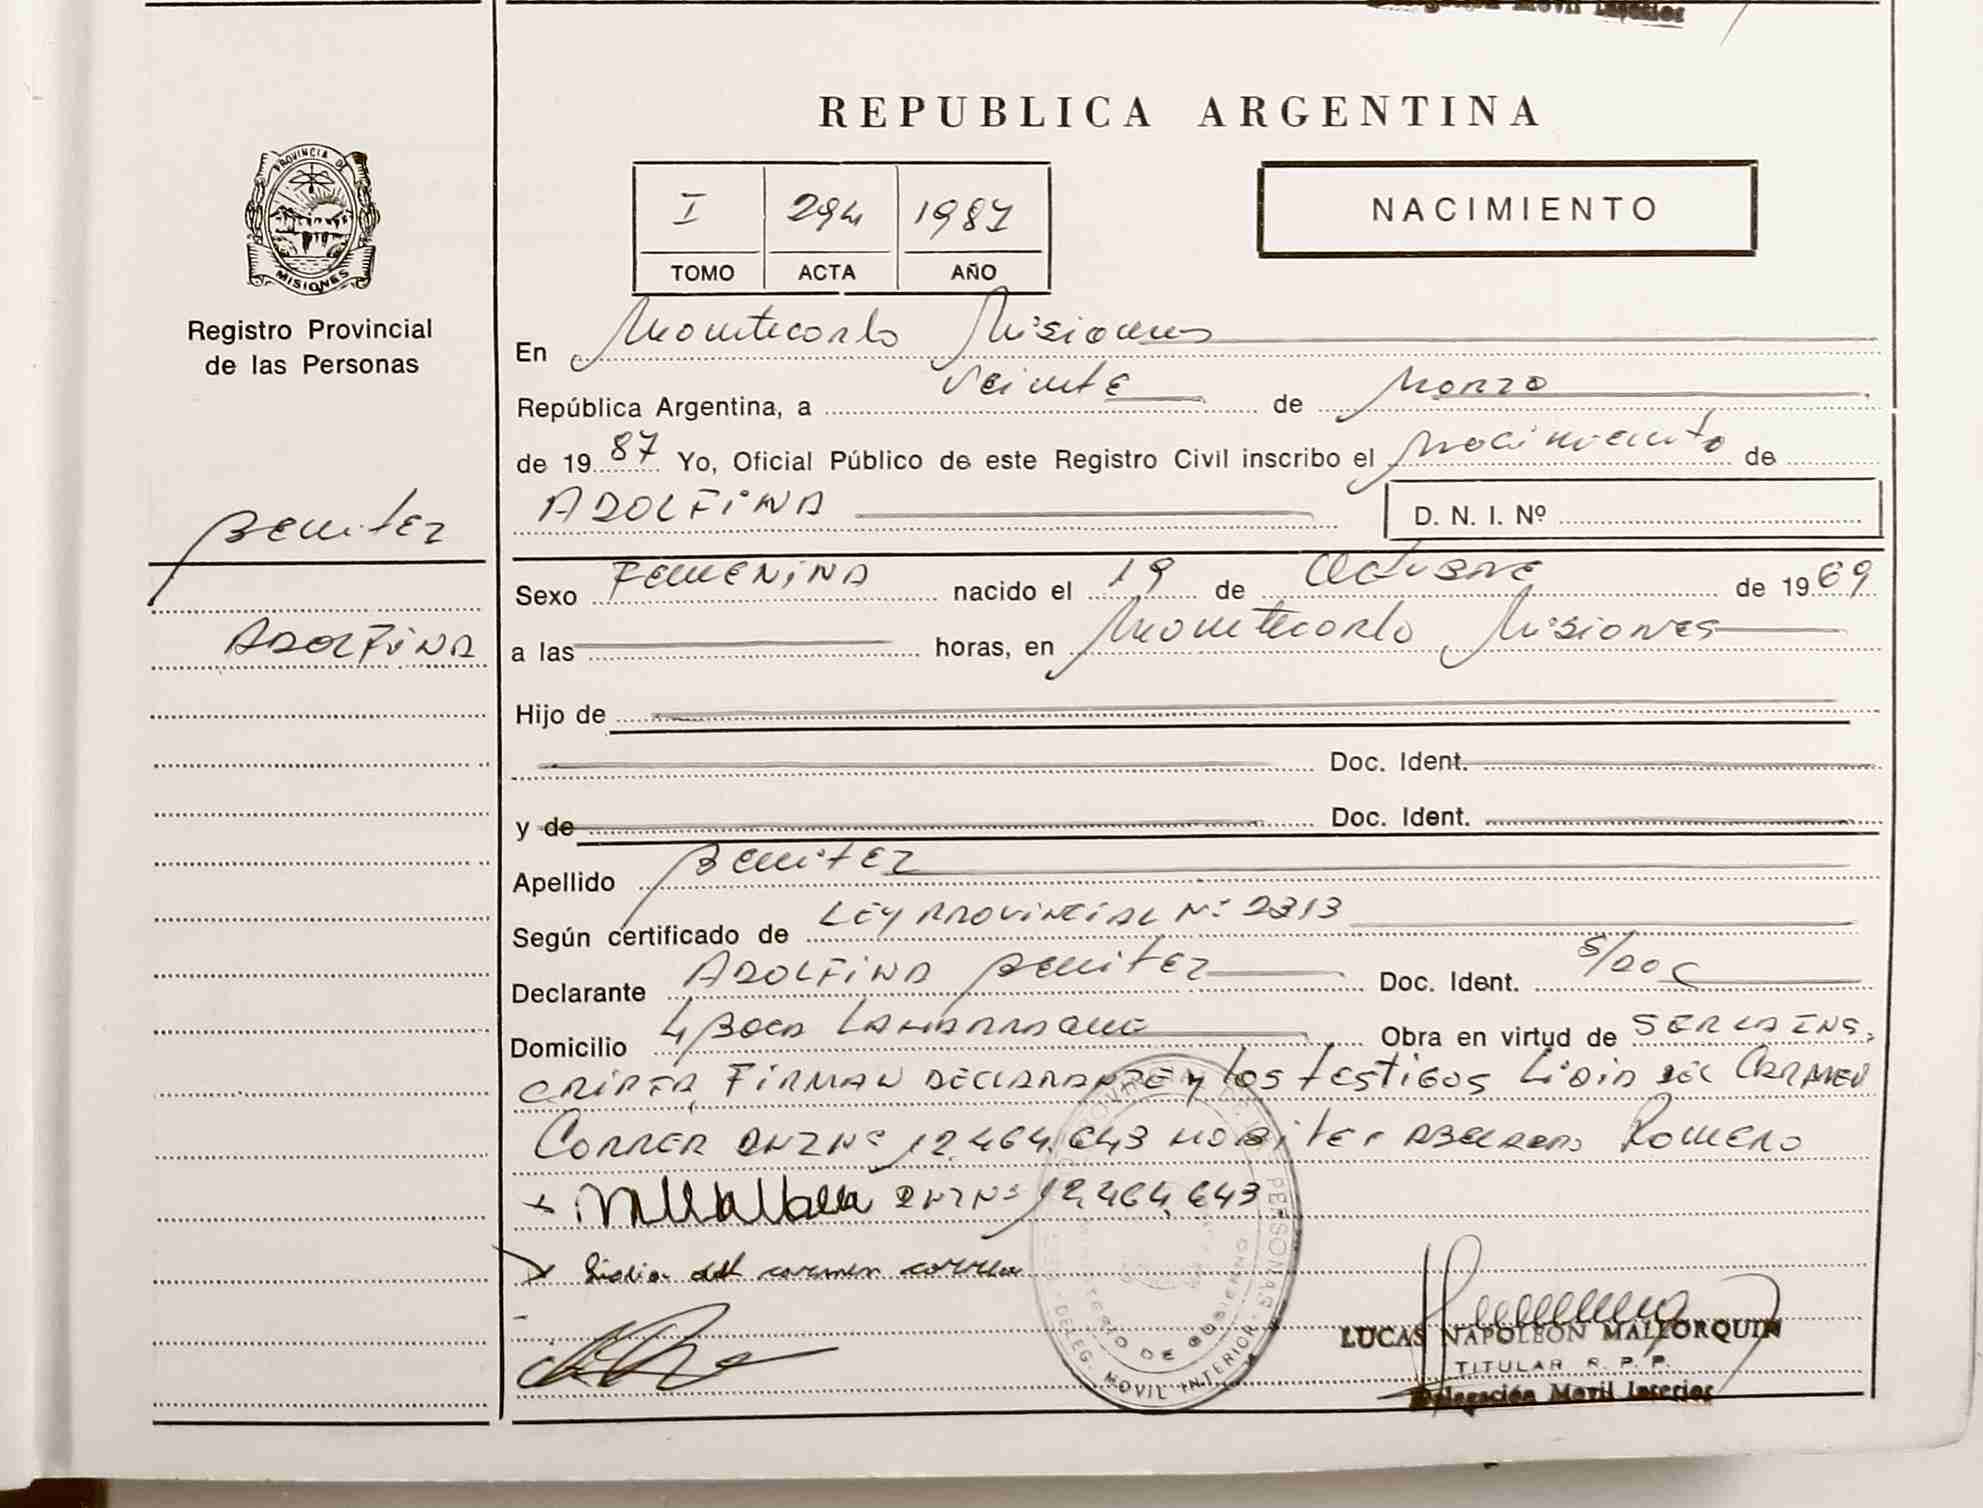 Delegación Movil Interior
REPUBLICA ARGENTINA
PROVINCIA DE
MISIONES
Registro Provincial
de las Personas
I 294 1987
TOMO ACTA AÑO
NACIMIENTO
En Montecarlo Misiones
República Argentina, a veinte de Marzo
de 1987 Yo, Oficial Público de este Registro Civil inscribo el nacimiento de
ADOLFINA D. N. I. Nº
Benitez
ADOLFINA
Sexo FEMENINA nacido el 19 de Octubre de 1969
a las horas, en Montecarlo Misiones
Hijo de
Doc. Ident.
y de Doc. Ident.
Apellido Benitez
Según certificado de LEY PROVINCIAL Nº 2313
Declarante ADOLFINA Benitez Doc. Ident. S/DOC
Domicilio Obra en virtud de SER LA INS-
CRIPTA, FIRMAN DECLARANTE y los testigos Lidia del CARMEN
CORREA DNI Nº 12.464.643 ROMERO
x DNI Nº 12,464,643
x Lidia del carmen correa
PERSONAS
DELEG. MOVIL INTERIOR
MINISTERIO DE GOBIERNO
LUCAS NAPOLEON MALLORQUIN
TITULAR R. P. P.
Delegación Movil Interior